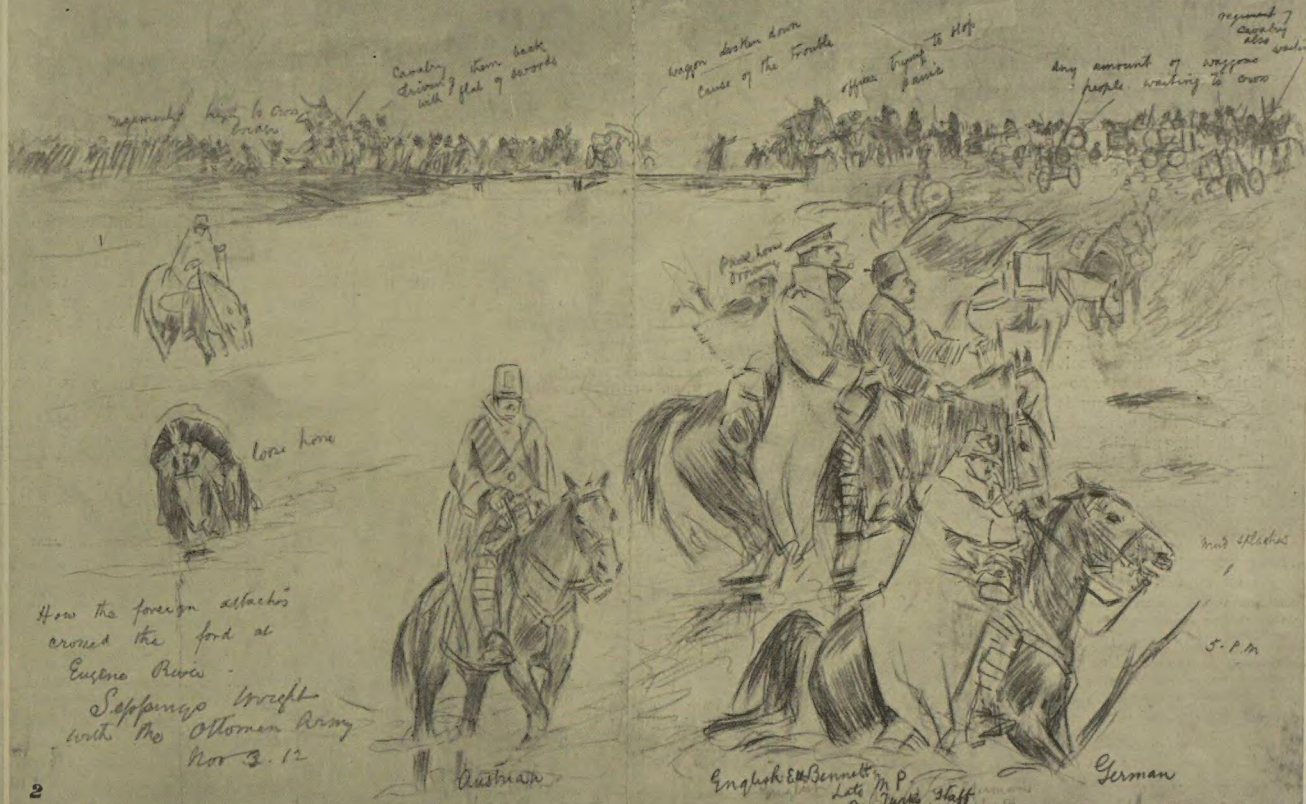 regiment
cavalry
also
Cavalry
driving them back
with flat of swords
waggon broken down
cause of the trouble
officer trying to stop
panic
Any amount of waggons
people waiting to cross
regiment trying to cross
loose horse
mud splashes
5. P.M
How the foreign attachés
crossed the ford at
River
Seppings Wright
with the Ottoman Army
Nov 3. 12
Austrian
English Bennett
Late M.P.
Staff
German
2